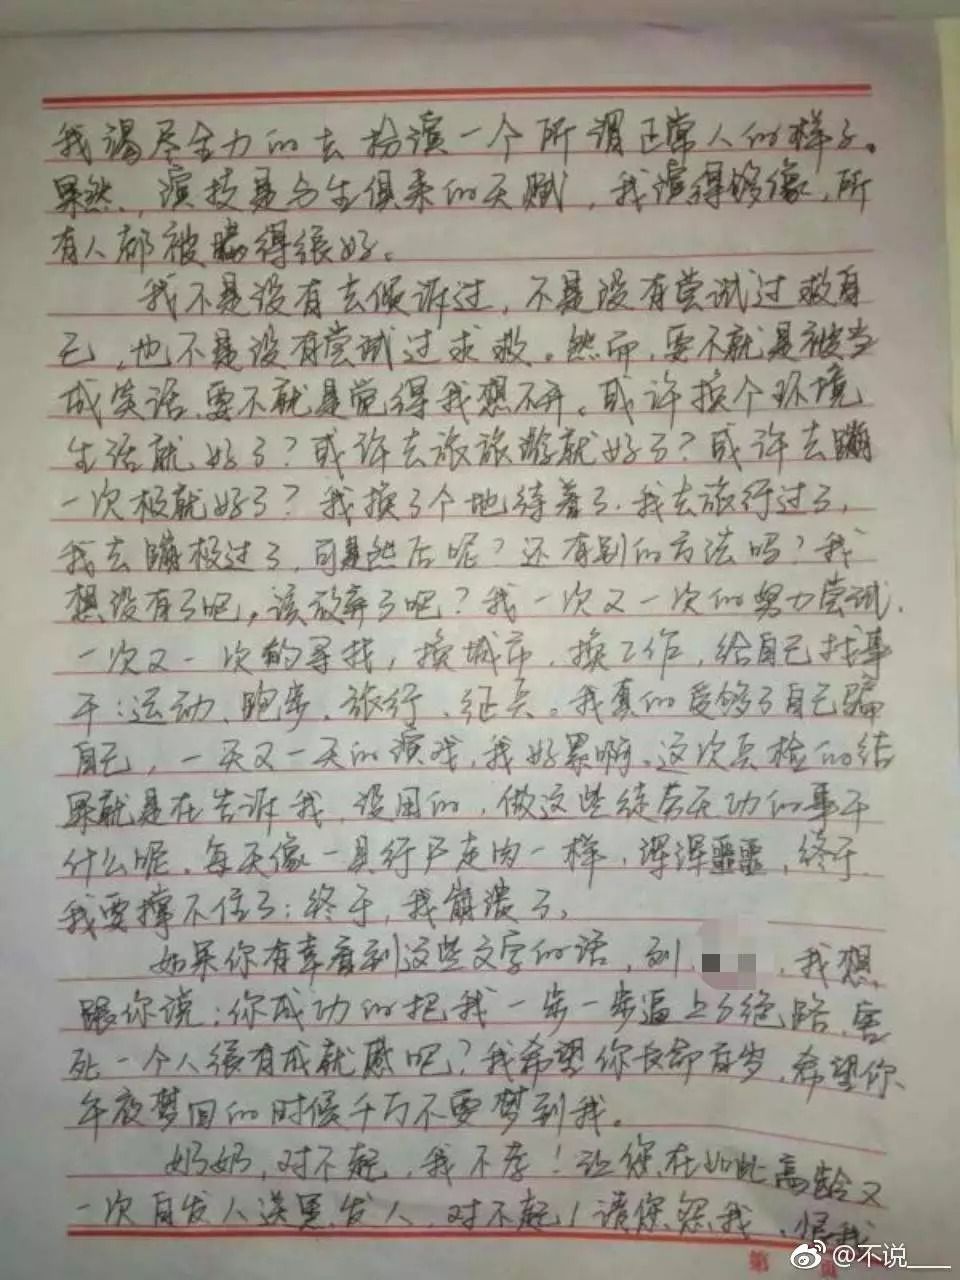 我竭尽全力的去扮演一个所谓正常人的样子。
果然,演技是与生俱来的天赋,我演得够像,所
有人都被瞒得很好。
我不是没有去倾诉过,不是没有尝试过救自
己,也不是没有尝试过求救。然而,要不就是被当
成笑话,要不就是觉得我想不开。或许换个环境
生活就好了?或许去旅旅游就好了?或许去蹦
一次极就好了?我换了个地待着了,我去旅行过了,
我去蹦极过了,可是然后呢?还有别的方法吗?我
想没有了吧。该放弃了吧?我一次又一次的努力尝试,
一次又一次的寻找,换城市,换工作,给自己找事
干:运动、跑步、旅行、征兵。我真的受够了自己骗
自己,一天又一天的演戏,我好累啊。这次兵检的结
果就是在告诉我,没用的,做这些徒劳无功的事干
什么呢。每天像一具行尸走肉一样,浑浑噩噩,终于,
我要撑不住了;终于,我崩溃了。
如果你有幸看到这些文字的话,刘,我想
跟你说:你成功的把我一步一步逼上了绝路,害
死一个人很有成就感吧?我希望你长命百岁,希望你
午夜梦回的时候千万不要梦到我。
奶奶,对不起,我不孝!让您在如此高龄又
一次白发人送黑发人,对不起!请您怨我、恨我
第 页
@不说___